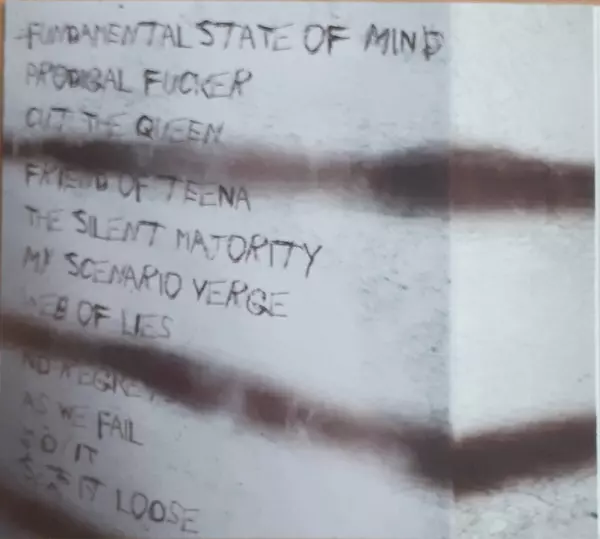 FUNDAMENTAL STATE OF MIND
PRODIGAL FUCKER
CUT THE QUEEN
FRIEND OF TEENA
THE SILENT MAJORITY
MY SCENARIO VERGE
WEB OF LIES
NO REGRET
AS WE FAIL
DO IT
IT LOOSE